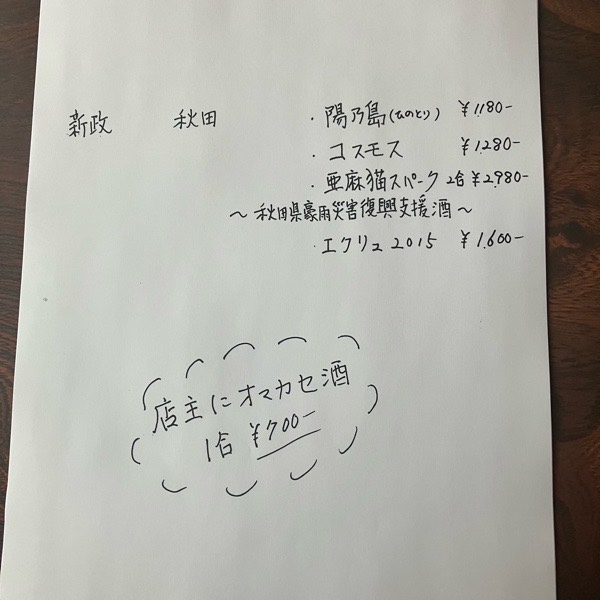 新政 秋田 ・陽乃鳥(ひのとり) ¥1180-
・コスモス ¥1280-
・亜麻猫スパーク 2合 ¥2,980-
〜秋田県豪雨災害復興支援酒〜
・エクリュ 2015 ¥1,600-
店主にオマカセ酒
1合 ¥700-